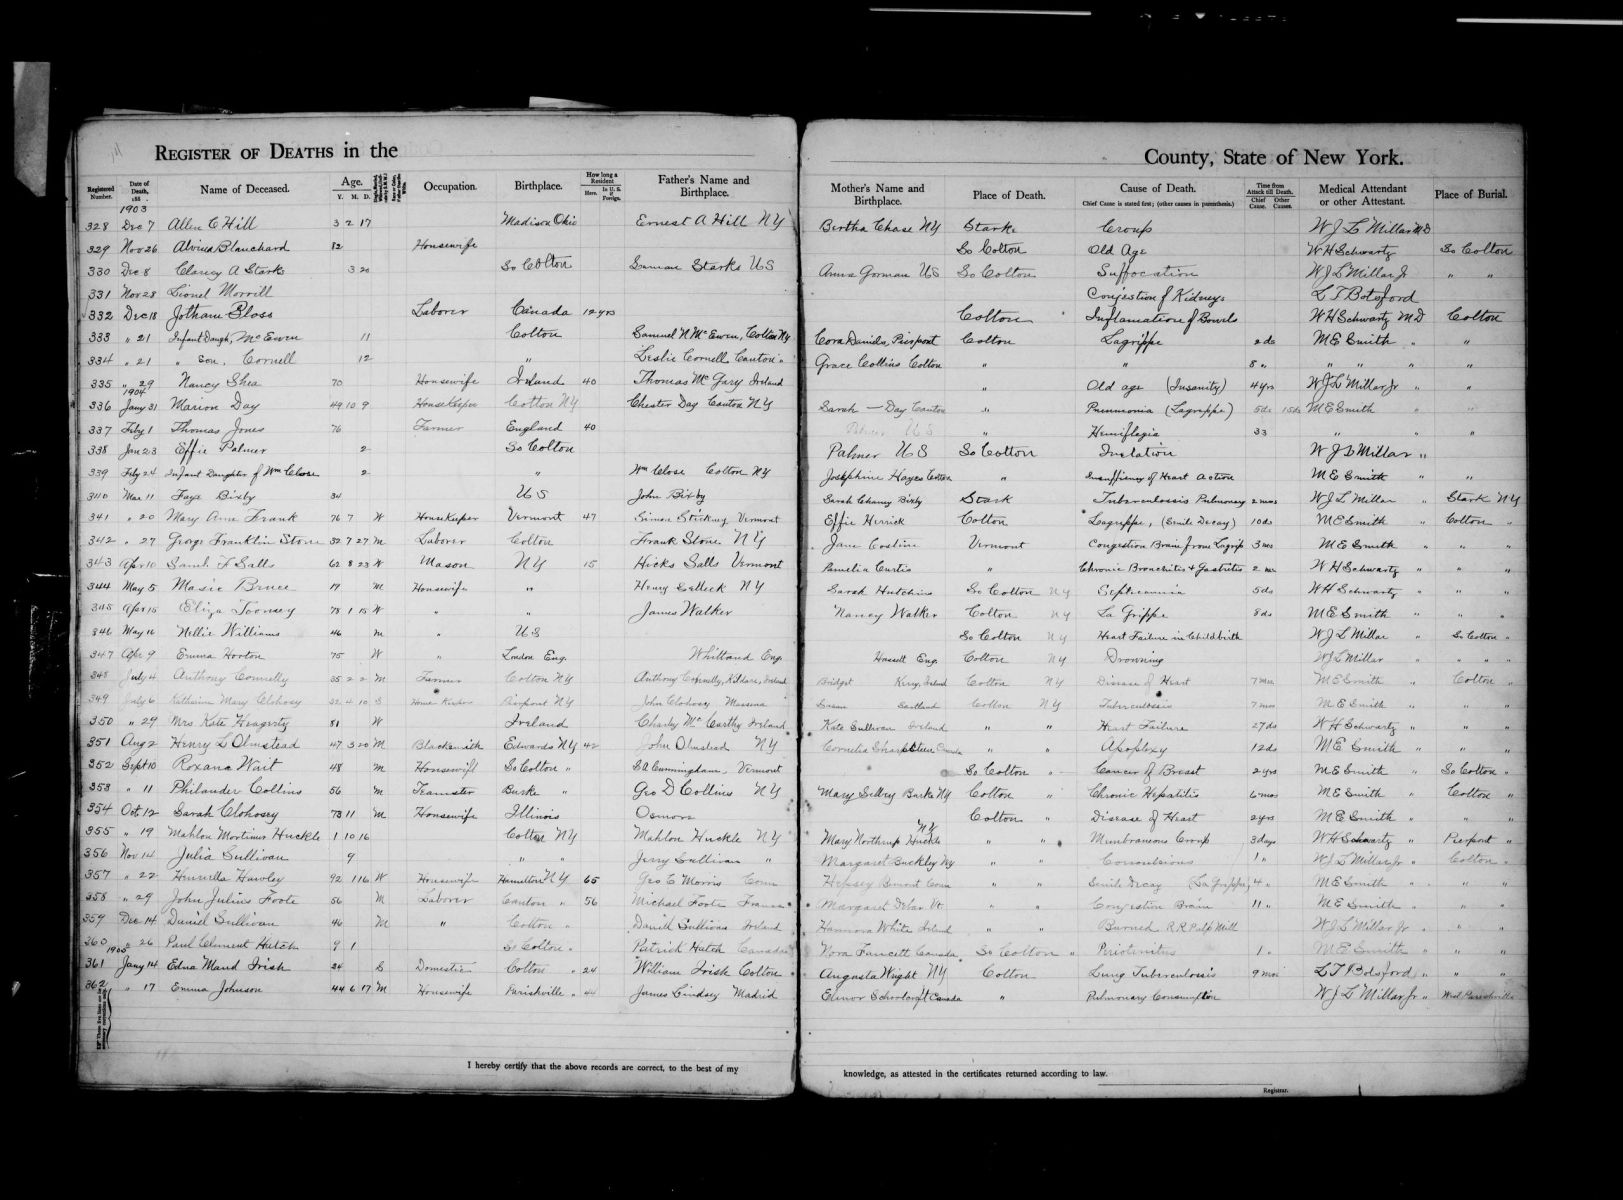 REGISTER OF DEATHS in the County, State of New York.
Registered Number. Date of Death, 188 . Name of Deceased. Age. Y. M. D. Occupation. Birthplace. How long a Resident Here. In U. S. if Foreign. Father's Name and Birthplace. Mother's Name and Birthplace. Place of Death. Cause of Death. Chief Cause is stated first; (other causes in parenthesis.) Time from Attack till Death. Chief Cause. Other Causes. Medical Attendant or other Attestant. Place of Burial.
1903
328 Dec 7 Allen C Hill 3 2 17 Madison Ohio Ernest A Hill NY Bertha Chase NY Starke Croup W J L Millar MD
329 Nov 26 Alvina Blanchard 82 Housewife So Colton Old Age W H Schwartz So Colton
330 Dec 8 Clancy A Starks 3 20 So Colton Starks US Anna Gorman US So Colton Suffocation W J L Millar Jr " "
331 Nov 28 Lionel Morrill Congestion of Kidneys L T Botsford
332 Dec 18 Jotham Bloss Laborer Canada 12 yrs Colton Inflamation of Bowels W H Schwartz MD Colton
333 " 21 Infant Daugh, McEwen 11 Colton Samuel N McEwen, Colton NY Cora Daniels, Pierpont Colton Lagrippe 2 ds M E Smith " "
334 " 21 " Son, Cornell 12 " Leslie Cornell Canton " Grace Collins Colton " " 8 " " " " "
335 " 29 Nancy Shea 70 Housewife Ireland 40 Thomas McGary Ireland " Old age (Insanity) 4 yrs W J L Millar Jr " "
1904
336 Jany 31 Marion Day 49 10 9 HouseKeeper Colton NY Chester Day Canton NY Sarah — Day Canton " Pneumonia (Lagrippe) 5 ds 15 ds M E Smith " "
337 Feby 1 Thomas Jones 76 Farmer England 40 " Hemiflegia 33 " " "
338 Jan 23 Effie Palmer 2 So Colton Palmer U S So Colton Inilation W J L Millar "
339 Feby 24 Infant Daughter of Wm Close 2 " Wm Close Colton NY Josephine Hayes Colton " Insufficiency of Heart Action M E Smith " "
340 Mar 11 Faye Bixby 34 U S John Bixby Sarah Chaney Bixby Stark Tuberculosis Pulmonary 2 mos W J L Millar " Stark NY
341 " 20 Mary Ann Frank 76 7 W HouseKeeper Vermont 47 Simon Stickney Vermont Effie Herrick Colton Lagrippe, (Senile Decay) 10 ds M E Smith " Colton "
342 " 27 George Franklin Stone 32 7 27 M Laborer Colton Frank Stone NY Jane Costine Vermont Congestion Brain from Lagrip 3 mos M E Smith " " "
343 Apr 10 Sarah F Salls 62 8 23 W Mason NY 15 Hicks Salls Vermont Pamelia Curtis " Chronic Bronchitis + Gastritis 2 mos W H Schwartz " " "
344 May 5 Masie Bruce 19 M Housewife " Henry Selleck NY Sarah Hutchins So Colton NY Septicaemia 5 ds W H Schwartz " " "
345 Apr 15 Eliza Toomey 78 1 15 W " " James Walker Nancy Walker Colton NY La Grippe 8 ds M E Smith " " "
346 May 16 Nellie Williams 46 M " U S So Colton NY Heart Failure in Childbirth W J L Millar " So Colton "
347 Apr 9 Emma Horton 75 W " London Eng. Whittand Eng. Hassett Eng. Colton NY Drowning W J L Millar " " "
348 July 4 Anthony Connelly 35 2 2 M Farmer Colton NY Anthony Connelly, Kildare, Ireland Bridget Kerry, Ireland Colton NY Disease of Heart 7 mos M E Smith " Colton "
349 July 6 Katherine Mary Clohosy 32 4 10 S House Keeper Pierpont NY John Clohosy Massena Susan Scotland Colton NY Tuberculosis 7 mos M E Smith " " "
350 " 29 Mrs Kate Heagerty 81 W Ireland Charley McCarthy Ireland Kate Sullivan Ireland " " Heart Failure 27 ds W H Schwartz " " "
351 Aug 2 Henry L Olmstead 47 3 20 M Blacksmith Edwards NY 42 John Olmstead NY Cornelia Sharpsteen Canada " " Apoplexy 12 ds M E Smith " " "
352 Sept 10 Roxana Wait 48 M Housewife So Colton " S A Cunningham, Vermont So Colton " Cancer of Breast 2 yrs M E Smith " So Colton "
353 " 11 Philander Collins 56 M Teamster Burke " Geo D Collins NY Mary Selley Burke NY Colton " Chronic Hepatitis 6 mos M E Smith " Colton "
354 Oct 12 Sarah Clohosey 73 11 M Housewife Illinois Osmore Colton " Disease of Heart 2 yrs M E Smith " " "
355 " 19 Mahlon Mortimer Huckle 1 10 16 Colton NY Mahlon Huckle NY Mary Northrup Huckle NY " " Membranous Croup 3 days W H Schwartz " Pierpont "
356 Nov 14 Julia Sullivan 9 " " Jerry Sullivan " Margaret Buckley NY " " Convulsions 1 " W J L Millar Jr " Colton "
357 " 22 Hawley 92 1 16 W Housewife Hamilton NY 65 Geo C Morris Conn Hepsey Bemont Conn " " Senile Decay (La Grippe) 4 " M E Smith " " "
358 " 29 John Julius Foote 56 M Laborer Canton " 56 Michael Foote France Margaret Vt. " " Congestion Brain 11 " M E Smith " " "
359 Dec 14 Daniel Sullivan 46 M " Colton " Daniel Sullivan Ireland Hannora White Ireland " " Burned R R Pulp Mill W J L Millar Jr " " "
360 " 26 Paul Clement Hatch 9 1 So Colton " Patrick Hatch Canada Nora Fancett Canada So Colton " Peritonitis 1 " M E Smith " " "
1905
361 Jany 14 Edna Maud Irish 24 S Domestic Colton " 24 William Irish Colton Augusta Wright NY Colton Lung Tuberculosis 9 mos L T Botsford " " "
362 " 17 Emma Johnson 44 6 17 M Housewife Parishville " 44 James Lindsey Madrid Elinor Schoolcraft Canada " Pulmonary Consumption W J L Millar Jr " West Parishville
I hereby certify that the above records are correct, to the best of my knowledge, as attested in the certificates returned according to law.
Registrar.